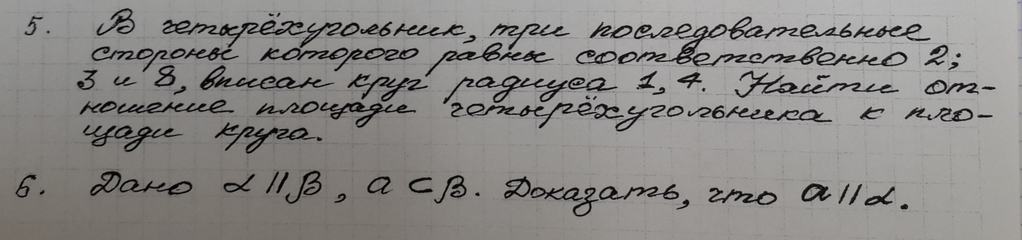 5. В четырёхугольник, три последовательные
стороны которого равны соответственно 2;
3 и 8, вписан круг радиуса 1,4. Найти от-
ношение площади четырёхугольника к пло-
щади круга.
6. Дано α || β, a ⊂ β. Доказать, что a || α.